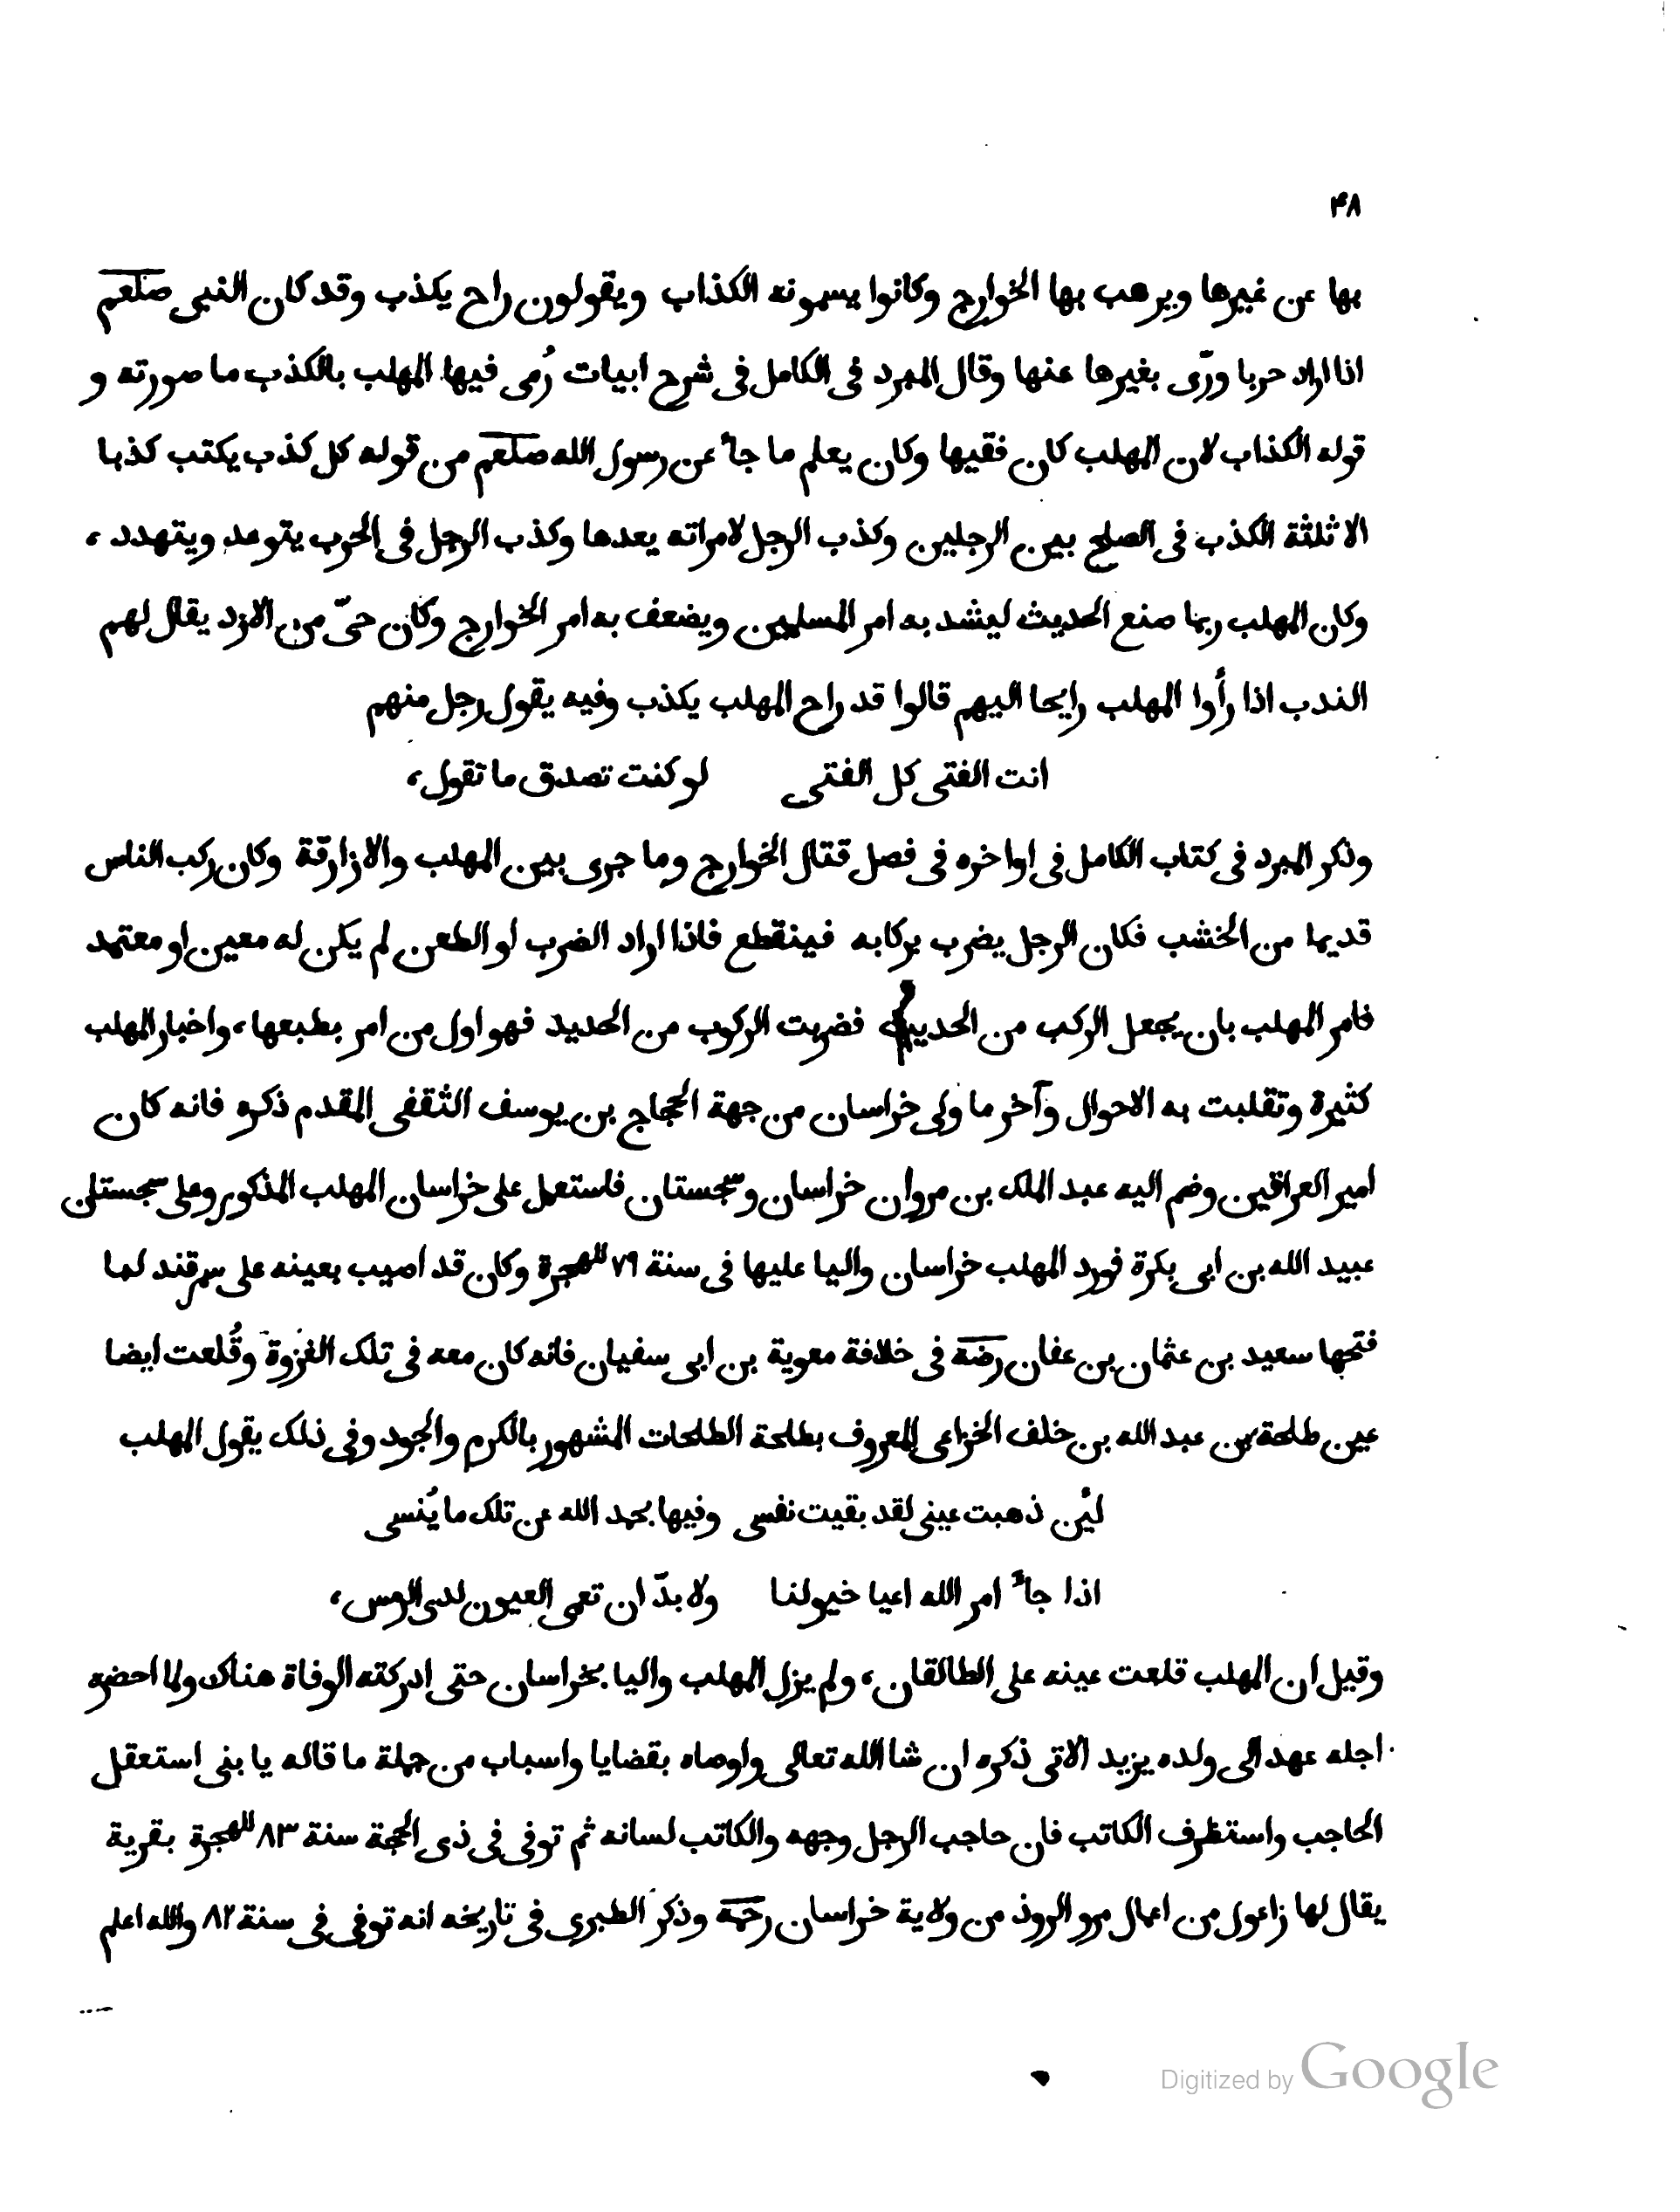 ۴۸
بها عن غيرها ويرهب بها الخوارج وكانوا يسمونه الكذاب ويقولون راح يكذب وقد كان النبى صلعم
اذا اراد حربا ورّى بغيرها عنها وقال المبرد فى الكامل فى شرح ابيات رُمى فيها المهلب بالكذب ما صورته و
قوله الكذاب لان المهلب كان فقيها وكان يعلم ما جاء عن رسول الله صلعم من قوله كل كذب يكتب كذبا
الا ثلثة الكذب فى الصلح بين الرجلين وكذب الرجل لامراته يعدها وكذب الرجل فى الحرب يتوعد ويتهدد ،
وكان المهلب ربما صنع الحديث ليشد به امر المسلمين ويضعف به امر الخوارج وكان حىّ من الازد يقال لهم
الندب اذا رأوا المهلب رايحا اليهم قالوا قد راح المهلب يكذب وفيه يقول رجل منهم
انت الفتى كل الفتى لو كنت تصدق ما تقول ،
وذكر المبرد فى كتاب الكامل فى اواخره فى فصل قتال الخوارج وما جرى بين المهلب والازارقة وكان ركب الناس
قديما من الخشب فكان الرجل يضرب بركابه فينقطع فاذا اراد الضرب او الطعن لم يكن له معين او معتمد
فامر المهلب بان يجعل الركب من الحديد فضربت الركوب من الحديد فهو اول من امر بطبعها ، واخبار المهلب
كثيرة وتقلبت به الاحوال وآخر ما ولى خراسان من جهة الحجاج بن يوسف الثقفى المقدم ذكره فانه كان
امير العراقين وضم اليه عبد الملك بن مروان خراسان وسجستان فاستعمل على خراسان المهلب المذكور وعلى سجستان
عبيد الله بن ابى بكرة فورد المهلب خراسان واليا عليها فى سنة ٧٩ للهجرة وكان قد اصيب بعينه على سمرقند لما
فتحها سعيد بن عثمان بن عفان رضه فى خلافة معوية بن ابى سفيان فانه كان معه فى تلك الغزوة وقُلعت ايضا
عين طلحة بن عبد الله بن خلف الخزاعى المعروف بطلحة الطلحات المشهور بالكرم والجود وفى ذلك يقول المهلب
لئن ذهبت عينى لقد بقيت نفسى وفيها بحمد الله عن تلك ما يُنسى
اذا جاء امر الله اعيا خيولنا ولا بدّ ان تعمى العيون لدى الرمس ،
وقيل ان المهلب قلعت عينه على الطالقان ، ولم يزل المهلب واليا بخراسان حتى ادركته الوفاة هناك ولما احضره
اجله عهد الى ولده يزيد الاتى ذكره ان شا الله تعالى واوصاه بقضايا واسباب من جملة ما قاله يا بنى استعقل
الحاجب واستظرف الكاتب فان حاجب الرجل وجهه والكاتب لسانه ثم توفى فى ذى الحجة سنة ٨٣ للهجرة بقرية
يقال لها زاغول من اعمال مرو الروذ من ولاية خراسان رحمه وذكر الطبرى فى تاريخه انه توفى فى سنة ٨٢ والله اعلم
Digitized by Google